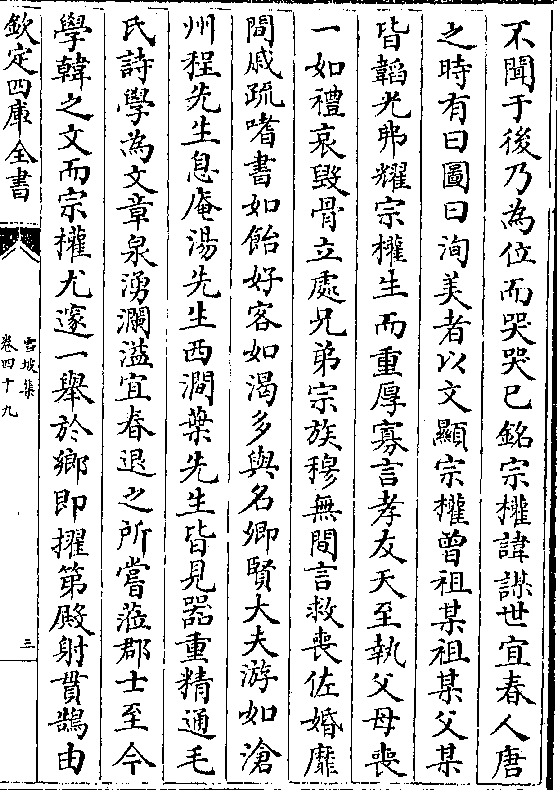 不聞于後乃為位而哭哭已銘宗權諱謀世宜春人唐
之時有曰圖曰洵美者以文顯宗權曾祖某祖某父某
皆韜光弗耀宗權生而重厚寡言孝友天至執父母喪
一如禮哀毀骨立處兄弟宗族穆無間言救喪佐婚靡
間戚疏嗜書如飴好客如渴多與名卿賢大夫游如滄
州程先生息庵湯先生西澗葉先生皆見器重精通毛
氏詩學為文章泉湧瀾溢宜春退之所嘗蒞郡士至今
學韓之文而宗權尤邃一舉於鄉即擢第殿射貫鵠由
欽定四庫全書
雪坡集
卷四十九
三